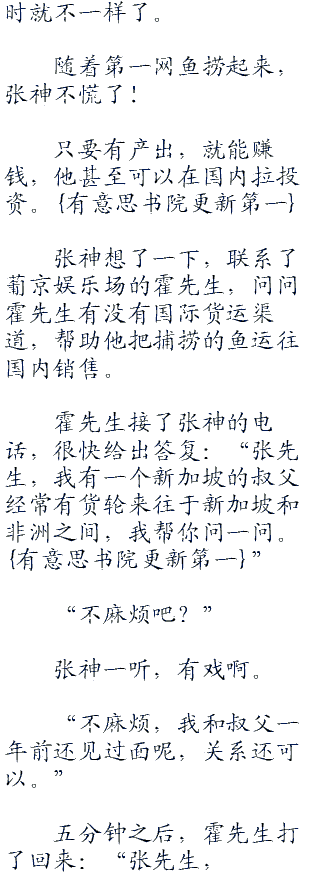 时就不一样了。
随着第一网鱼捞起来，
张神不慌了！
只要有产出，就能赚
钱，他甚至可以在国内拉投
资。{有意思书院更新第一}
张神想了一下，联系了
葡京娱乐场的霍先生，问问
霍先生有没有国际货运渠
道，帮助他把捕捞的鱼运往
国内销售。
霍先生接了张神的电
话，很快给出答复：“张先
生，我有一个新加坡的叔父
经常有货轮来往于新加坡和
非洲之间，我帮你问一问。
{有意思书院更新第一}”
“不麻烦吧？”
张神一听，有戏啊。
“不麻烦，我和叔父一
年前还见过面呢，关系还可
以。”
五分钟之后，霍先生打
了回来：“张先生，